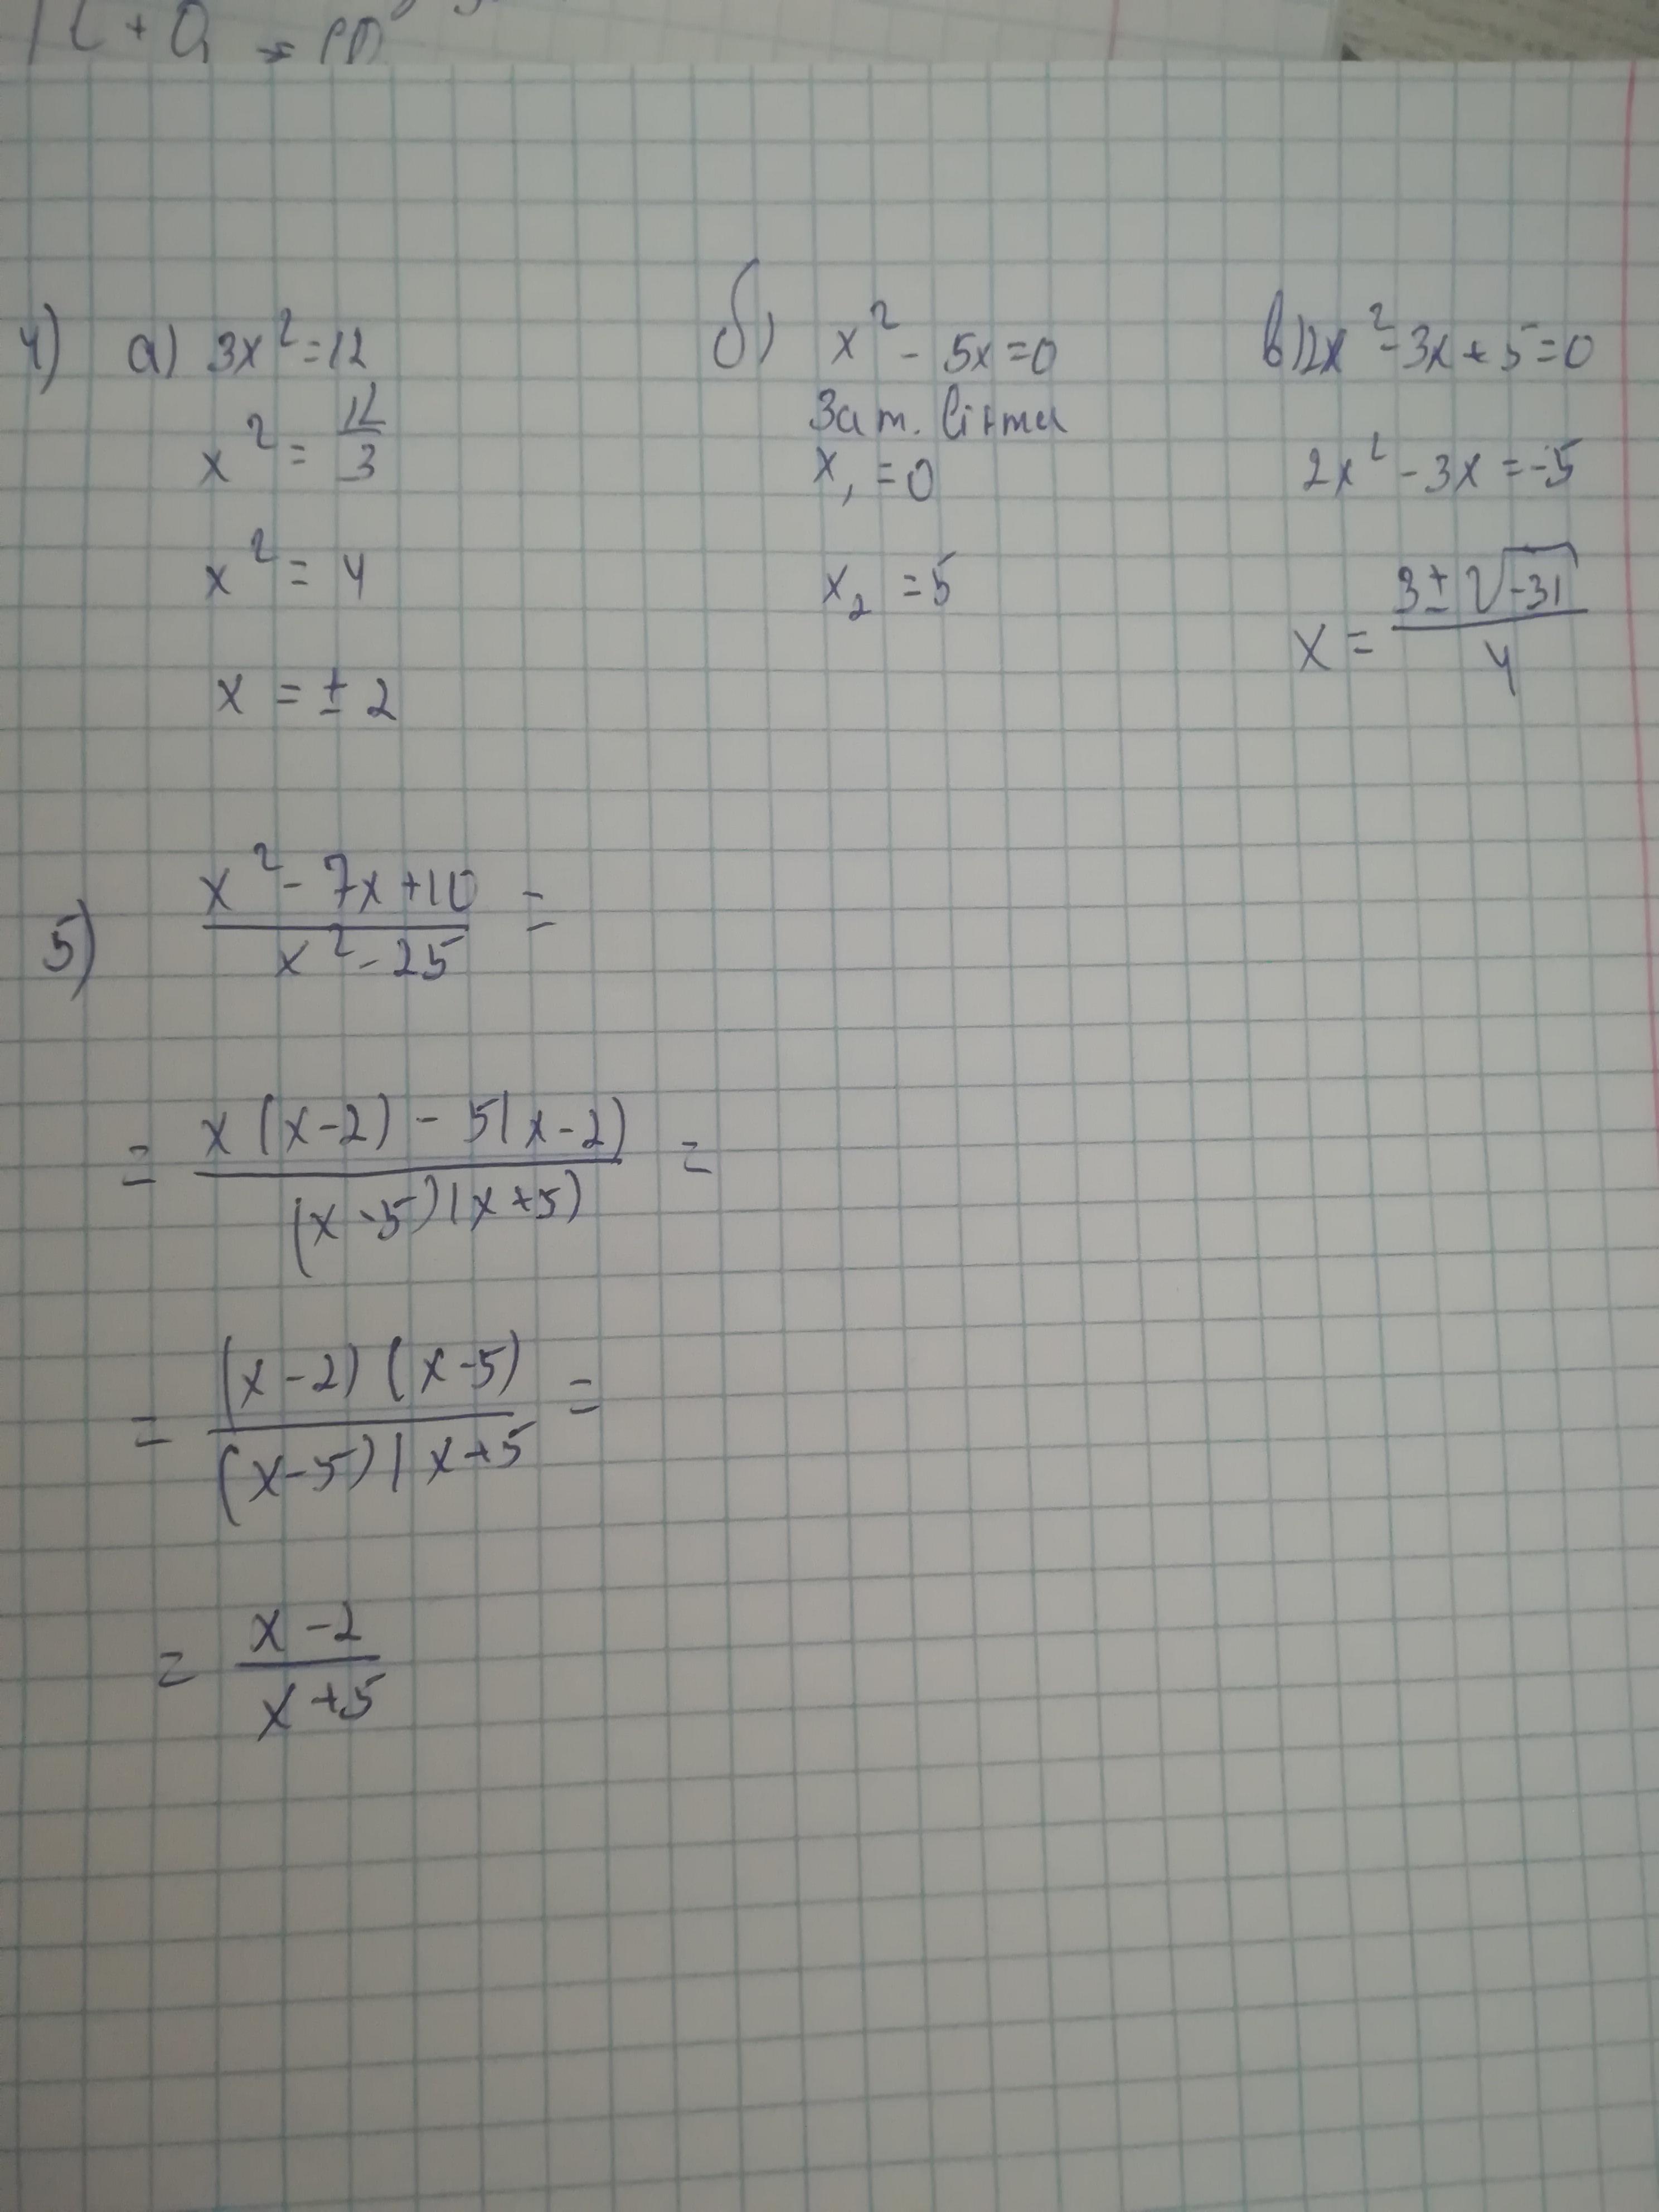 4) а) 3x² = 12
x² = 12/3
x² = 4
x = ± 2
б) x² - 5x = 0
За т. Вієта
x₁ = 0
x₂ = 5
в) 2x² - 3x + 5 = 0
2x² - 3x = -5
x = (3 ± √-31)/4
5) (x² - 7x + 10)/(x² - 25) =
= (x(x-2) - 5(x-2))/((x-5)(x+5)) =
= ((x-2)(x-5))/((x-5)(x+5 =
= (x-2)/(x+5)